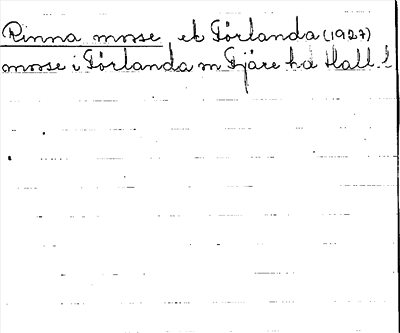 Rinna mosse ek Förlanda (1927)
mosse i Förlanda sn Fjäre hd Hall. l